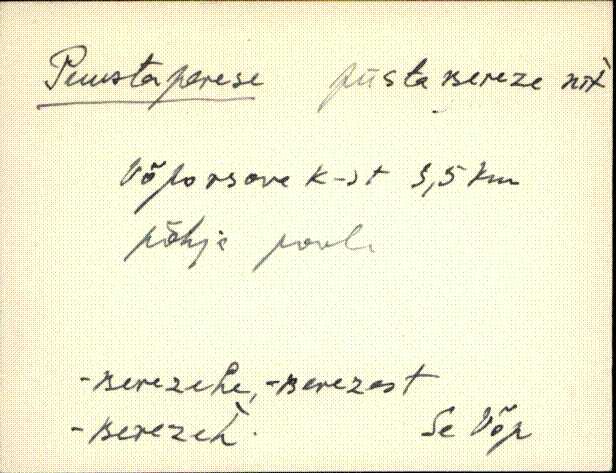 Puustaperese pūstaʙereze nìt̀
Võporsova k-st 3,5 km
põhja pool.
-ʙerezehe, -ʙerezest
-ʙerezeh̀. Se Võp